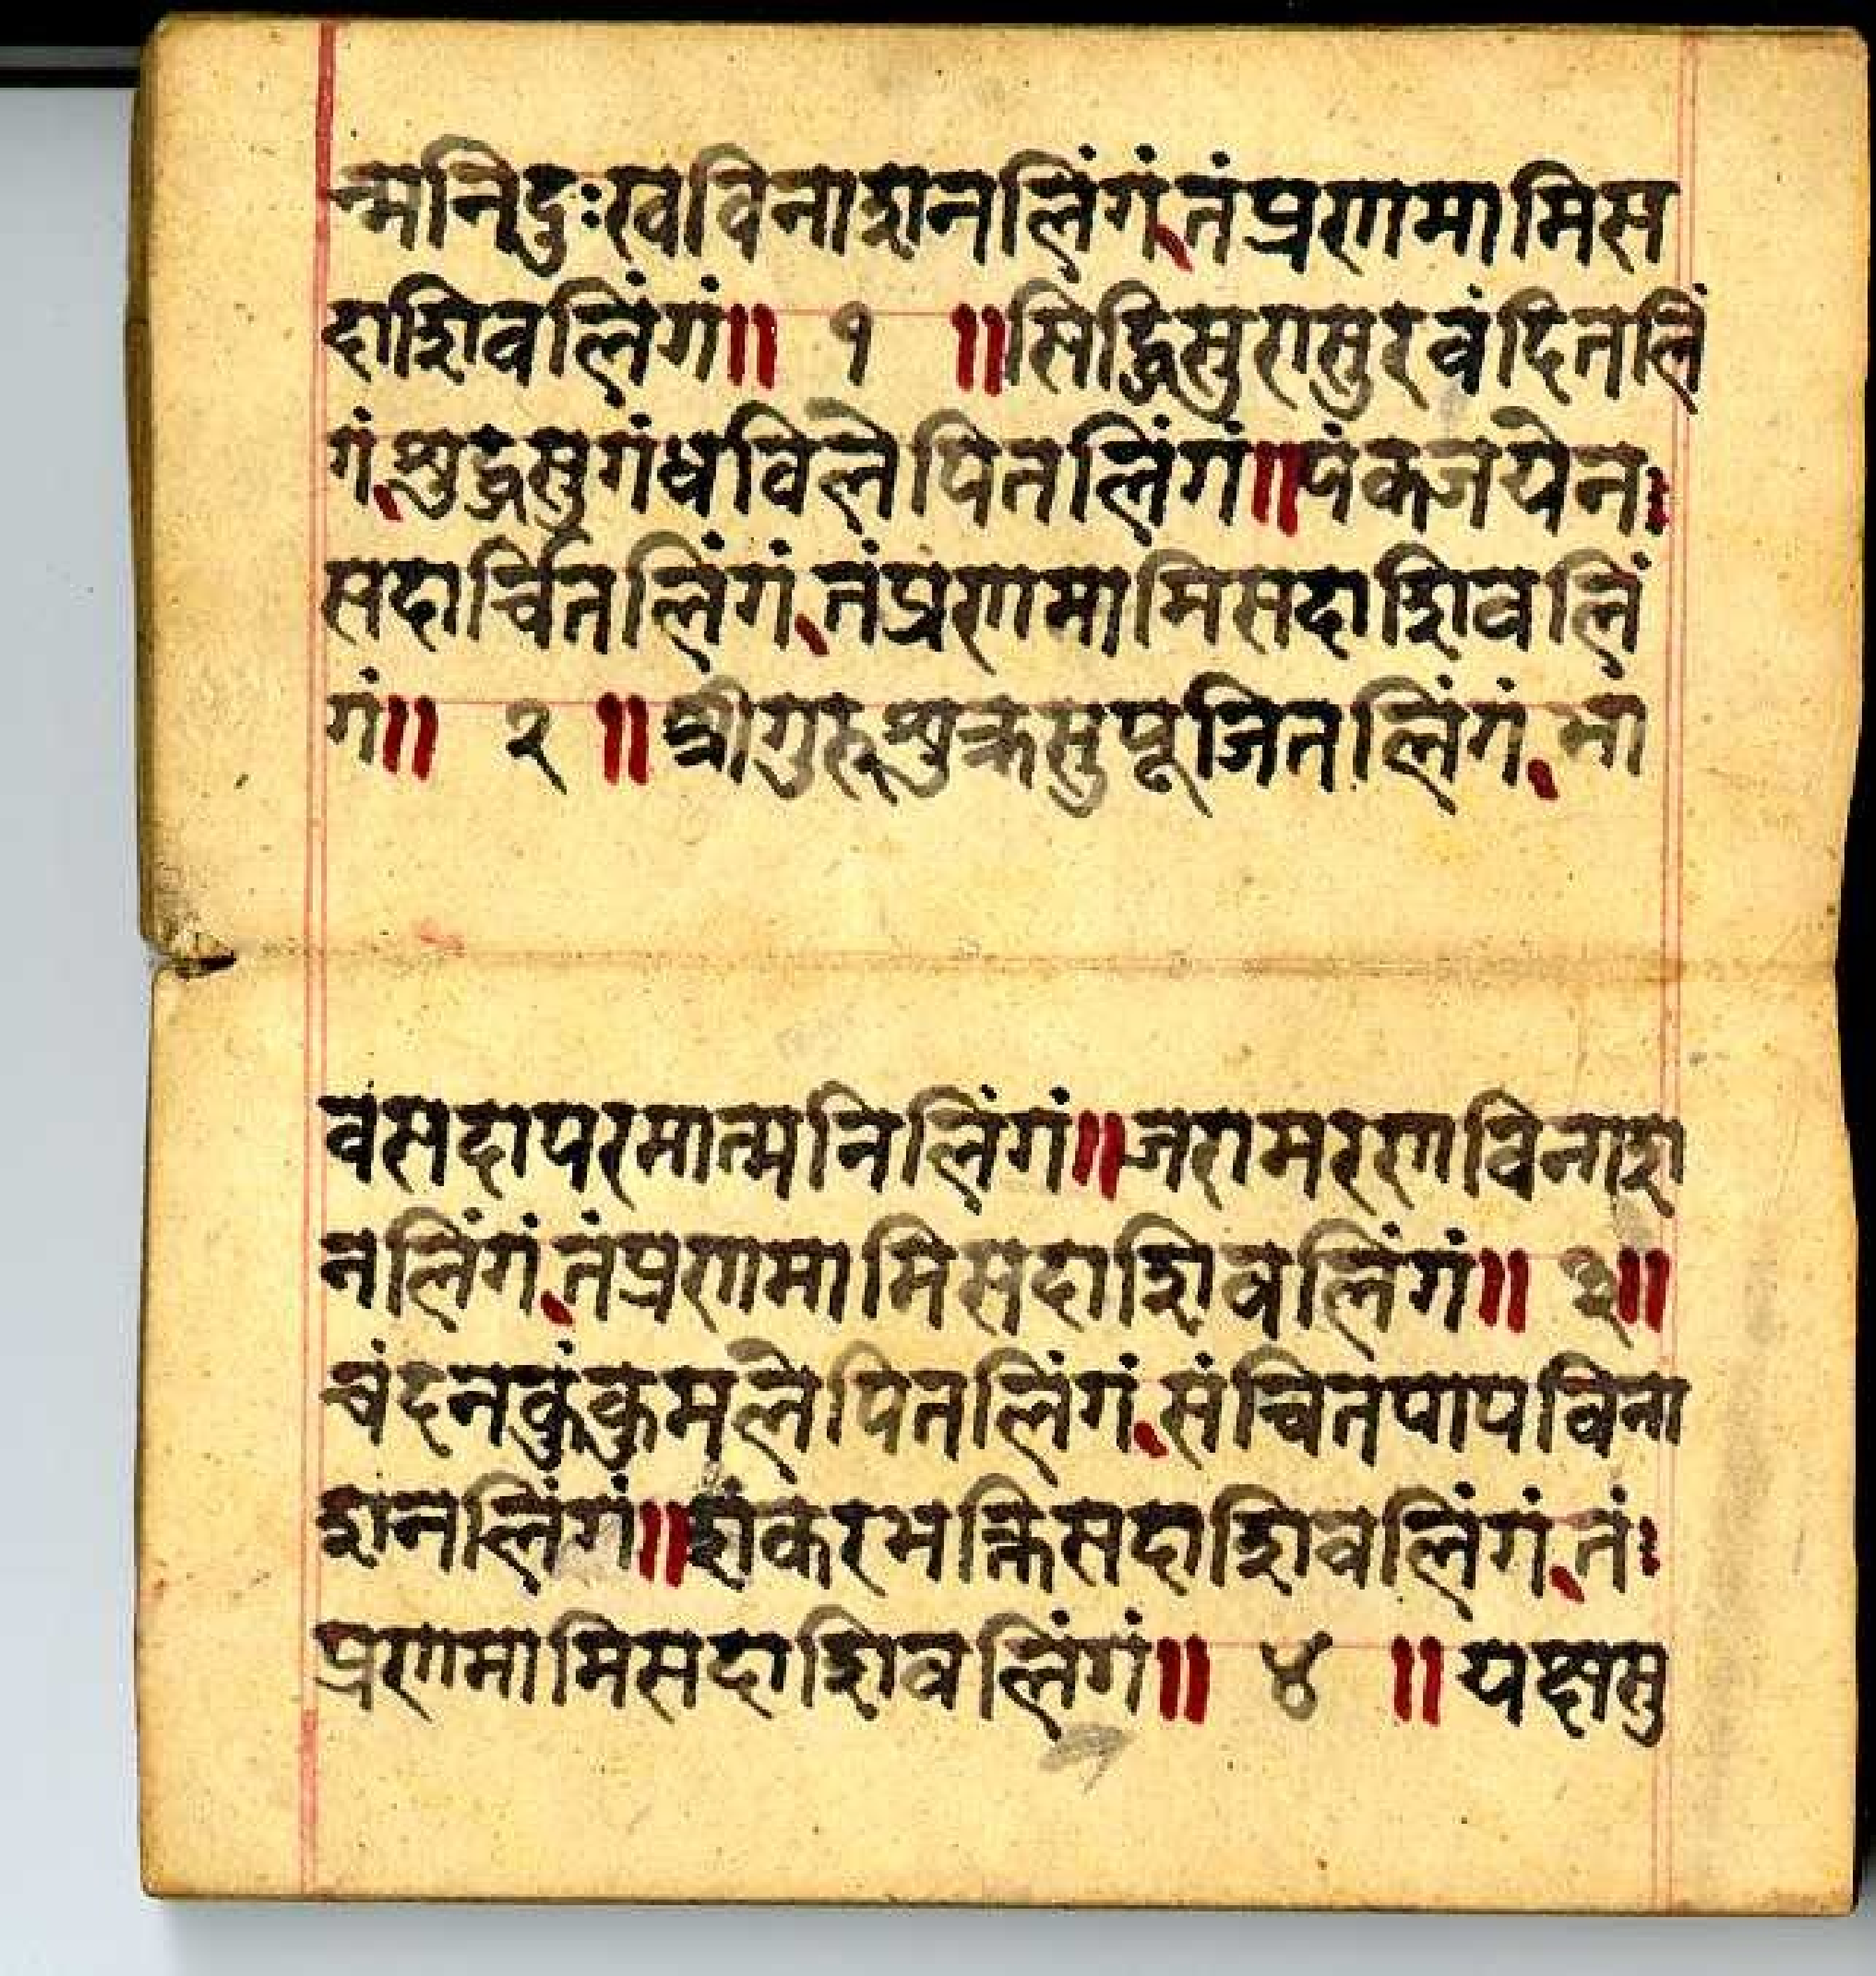 न्मनिदुःखविनाशनलिंगं, तंप्रणमामिस
दाशिवलिंगं॥ १ ॥सिद्धिसुरासुरवंदितलिं
गं, शुद्धसुगंधविलेपितलिंगं॥पंकजयेनः
सदार्चितलिंगं, तंप्रणमामिसदाशिवलिं
गं॥ २ ॥श्रीगुरुशुक्रसुपूजितलिंगं, भा
वंसदापरमात्मनिलिंगं॥जरामरणविनाश
नलिंगं, तंप्रणमामिसदाशिवलिंगं॥ ३॥
चंदनकुंकुमलेपितलिंगं, संचितपापविना
शनलिंगं॥शंकरभक्तिसदाशिवलिंगं, तंः
प्रणमामिसदाशिवलिंगं॥ ४ ॥यक्षसु